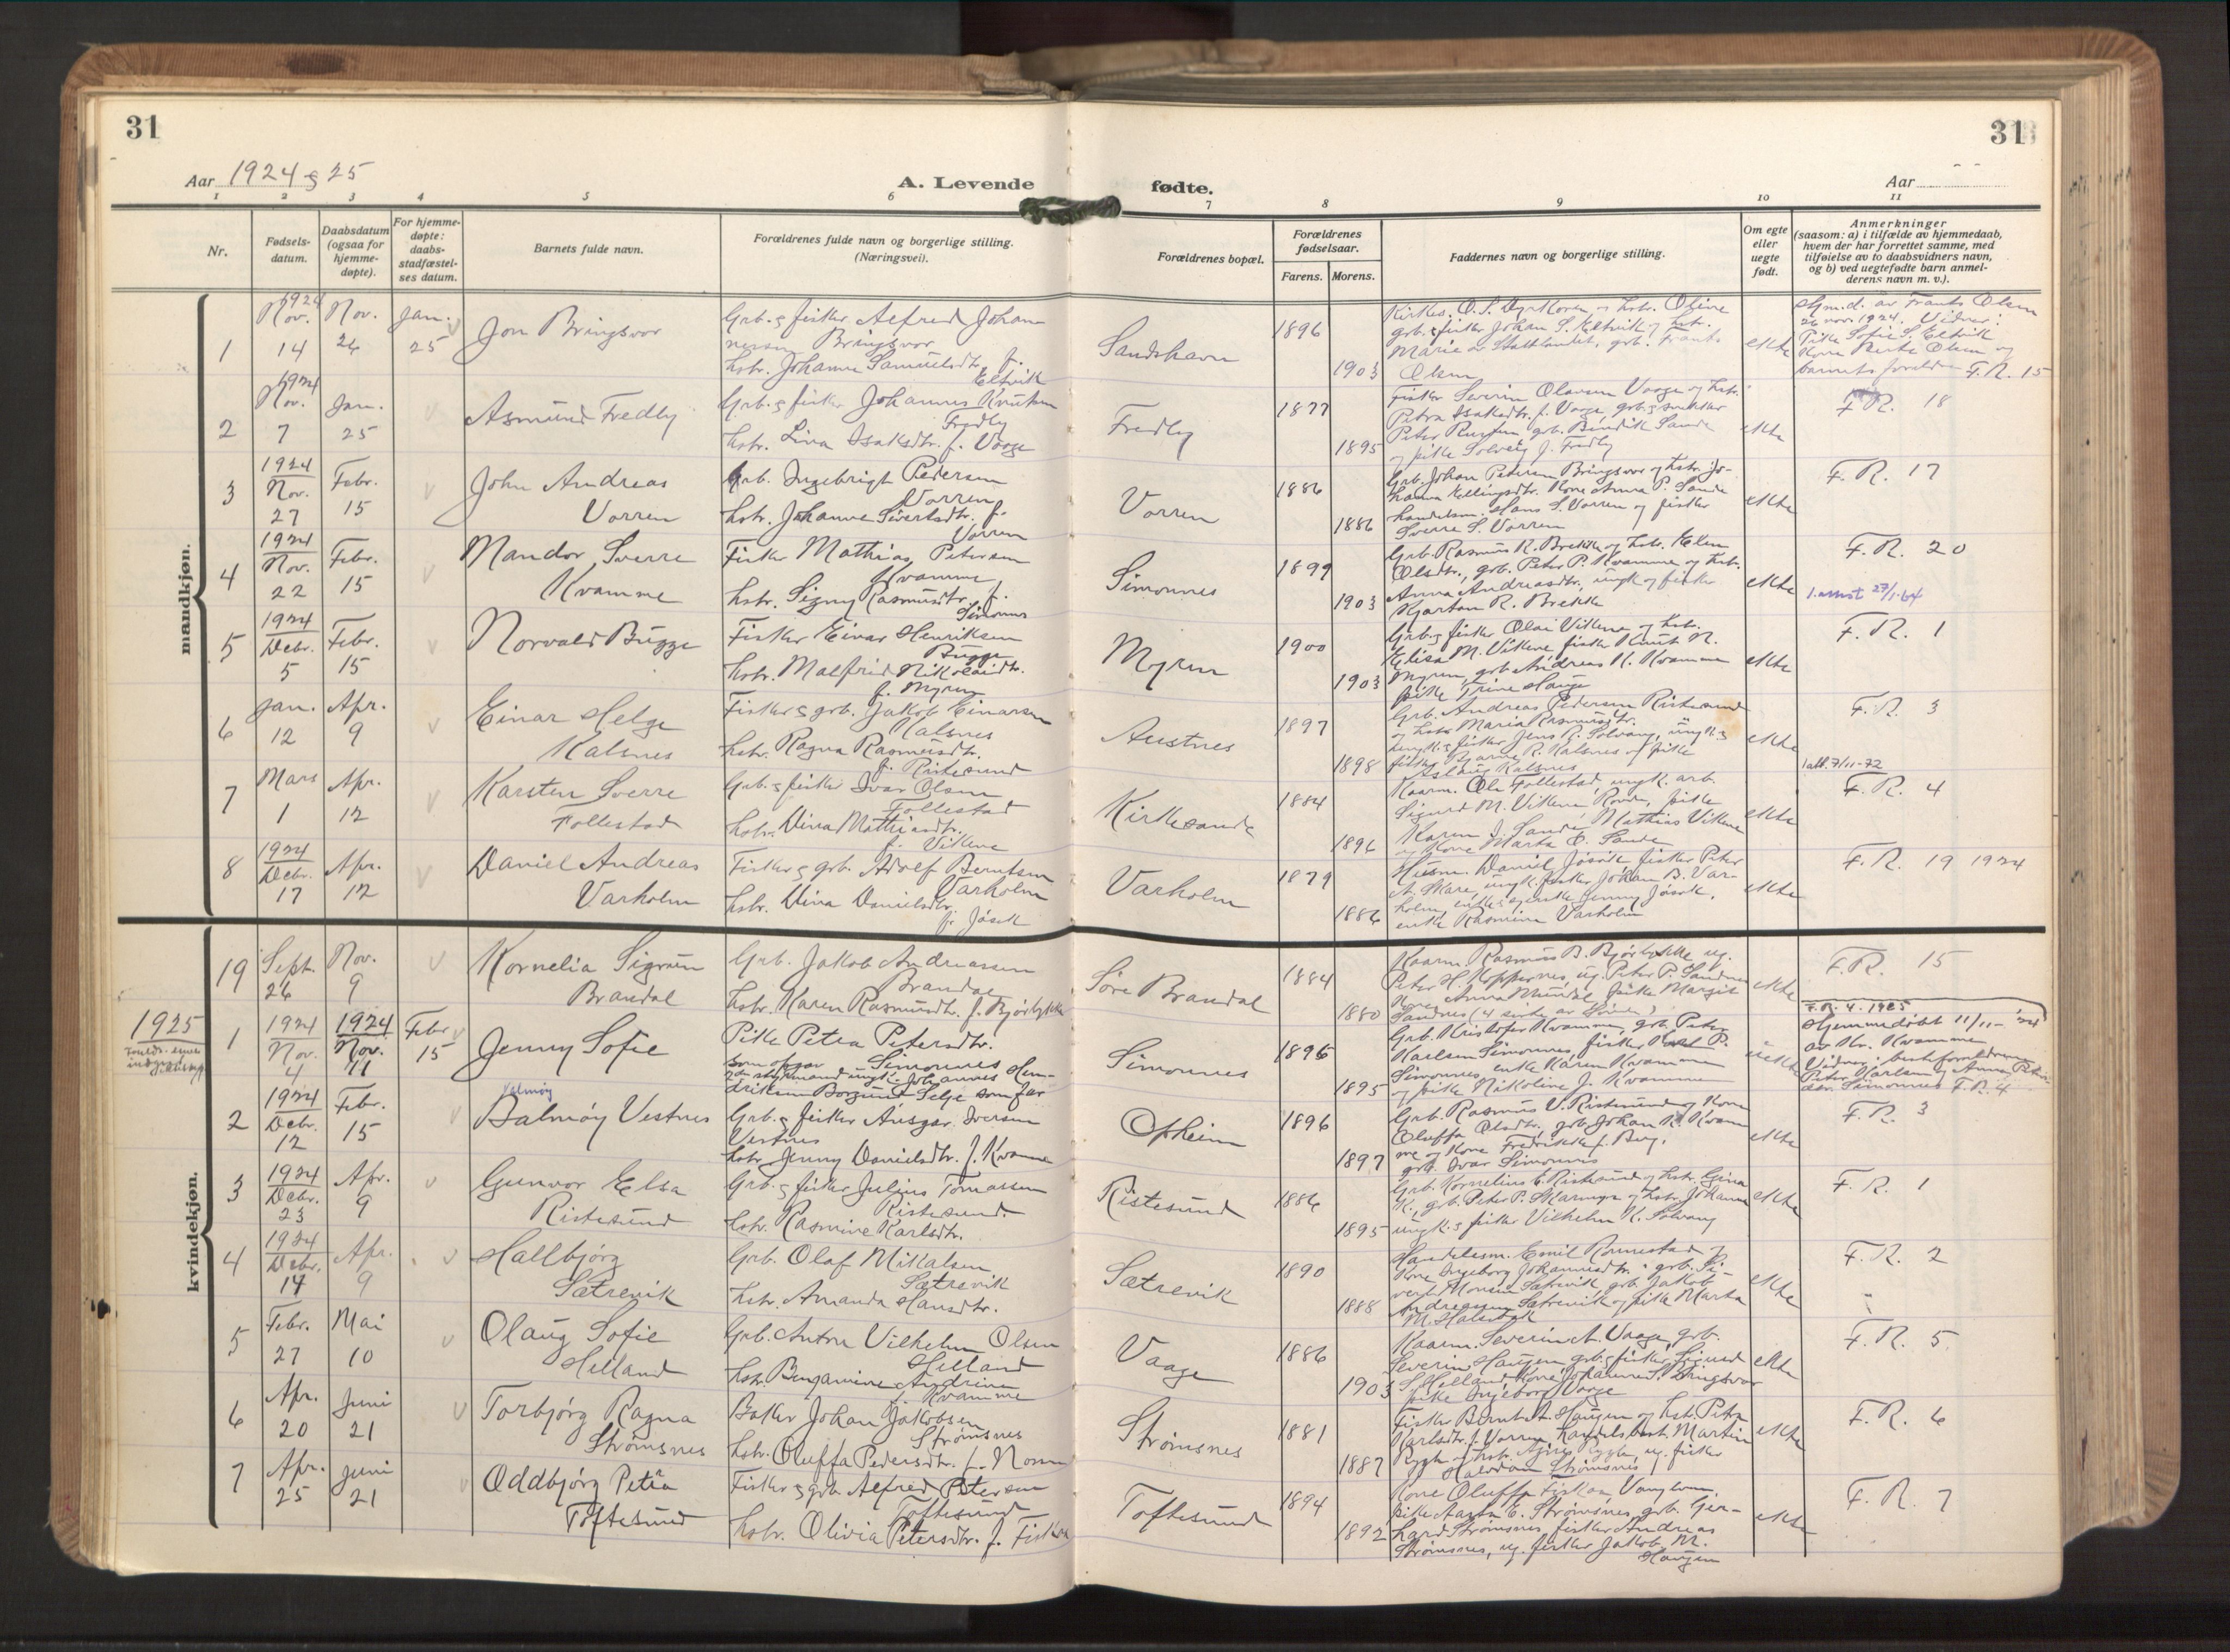 31
31
Aar 1924 & 25
A. Levende fødte.
Aar
1 2 3 4 5 6 7 8 9 10 11
Nr.
Fødsels-
datum.
Daabsdatum
(ogsaa for
hjemme-
døpte).
For hjemme-
døpte:
daabs-
stadfæstel-
ses datum.
Barnets fulde navn.
Forældrenes fulde navn og borgerlige stilling.
(Næringsvei).
Forældrenes bopæl.
Forældrenes
fødselsaar.
Farens. Morens.
Faddernes navn og borgerlige stilling.
Om egte
eller
uegte
født.
Anmerkninger
(saasom: a) i tilfælde av hjemmedaab,
hvem der har forrettet samme, med
tilføielse av to daabsvidners navn,
og b) ved uegtefødte barn anmel-
derens navn m. v.).
mandkjøn.
1
1924
Nov.
14
Nov.
26
Jan.
25
Jon Bringsvor
Grb. & fisker Alfred Johan
nesen Bringsvor
hstr. Johanne Samuelsdtr. f.
Eltvik
Sandshavn
1896
1903
grb. & fisker Johan S. Eltvik og hstr.
Marie av Statlandet, grb. Frants
Olsen
ekte
Hjm.d. av Frants Olsen
26 nov. 1924. Vidner:
Pike Sofie S. Eltvik
Kone Berte Olsen og
barnets foreldre F.R. 15
2
1924
Nov.
7
Jan.
25
Asmund Fredly
Grb. & fisker Johannes Knutsen
Fredly
hstr. Lina Isaksdtr. f. Vaage
Fredly
1877
1895
Fisker Severin Olavsen Vaage og hstr.
Petra Isaksdtr. f. Vaage, grb. & snekker
og pike Solveig J. Fredly
ekte
F.R. 18
3
1924
Nov.
27
Febr.
15
John Andreas
Vorren
Grb. Ingebrigt Pedersen
Vorren
hstr. Johanne Sivertsdtr. f.
Vorren
Vorren
1886
1886
Grb. Johan Petersen Bringsvor og hstr. Jo-
hanna Ellingsdtr. Kone Anna P. Sande
handelsm. Hans S. Vorren og fisker
Sverre S. Vorren
ekte
F.R. 17
4
1924
Nov.
22
Febr.
15
Mandor Sverre
Kvamme
Fisker Mathias Petersen
Kvamme
hstr. Signy Rasmusdtr. f.
Simonnes
Simonnes
1899
1903
Grb. Rasmus R. Brekke og hstr. Elen
Olsdtr., grb. Peter P. Kvamme og hstr.
Anna Andreasdtr., ungk. og fisker
Kjartan R. Brekke
ekte
F.R. 20
1. attest 27/1-64
5
1924
Debr.
5
Febr.
15
Norvald Bugge
Fisker Einar Henriksen
Bugge
hstr. Malfrid Nikolaidtr.
f. Myren
Myren
1900
1903
Grb. & fisker Olai Vikene og hstr.
Elisa M. Vikene, fisker Knut N.
Myren, grb. Andreas K. Kvamme
pike Trine Hauge
ekte
F.R. 1
6
Jan.
12
Apr.
9
Einar Helge
Kalsnes
Fisker & grb. Jakob Einarsen
Kalsnes
hstr. Ragna Rasmusdtr.
f. Ristesund
Austnes
1897
1898
Grb. Andreas Pedersen Ristesund
og hstr. Maria Rasmusdtr.
ungk. & fisker Jens R. Solvang, ungk. &
fisker Bjarne R. Kalsnes og pike
Aslaug Kalsnes
ekte
F.R. 3
1 att. 7/11-72
7
Mars
1
Apr.
12
Karsten Sverre
Follestad
Grb. & fisker Ivar Olsen
Follestad
hstr. Dina Mathiasdtr.
f. Vikene
Kirkesande
1884
1896
Kaarm. Ole Follestad, ungk. arb.
Sigurd M. Vikene, Rovde, pike
Karen J. Sande, Mathias Vikene
og kone Marta O. Sande
ekte
F.R. 4
8
1924
Debr.
17
Apr.
12
Daniel Andreas
Varholm
Fisker & grb. Adolf Berntsen
Varholm
hstr. Dina Danielsdtr.
f. Jøsok
Varholm
1879
1886
Husm. Daniel Jøsok, fisker Peter
A. Skare, ungk. fisker Johan B. Var-
holm, Jenny Jøsok,
enke Rasmine Varholm
ekte
F.R. 19 1924
kvindekjøn.
19
Sept.
26
Nov.
9
Kornelia Sigrun
Brandal
Grb. Jakob Andreassen
Brandal
hstr. Karen Rasmusdtr. f. Bjørlykke
Søre Brandal
1884
1880
Kaarm. Rasmus B. Bjørlykke, ug.
Peter H. Koppernes, ug. Peter P. Sandnes
Kone Anna Mundal, pike Margit
Sandnes
ekte
F.R. 15
1925
1
1924
Nov.
4
1924
Nov.
11
Febr.
15
Jenny Sofie
Pike Petra Petersdtr.
Simonnes
som opgav
styrmand ungk. Johannes Hen-
driksen Borgund Selje som far
Simonnes
1896
1895
Grb. Kristofer Kvamme, grb. Peter
Karlsen Simonnes, fisker Karl P.
Simonnes, enke Karen Kvamme
og pike Nikoline J. Kvamme
uekte
F.R. 4. 1925
Hjemmedøbt 11/11-24
av Kr. Kvamme
Vidner: besteforeldrene
Peter Karlsen og Anna Peters-
dtr. Simonnes F.R. 4
2
1924
Debr.
12
Febr.
15
Valmøy
Balmøy Vestnes
Grb. & fisker Ansgar Iversen
Vestnes
hstr. Jenny Danielsdtr. f. Kvamme
Opheim
1896
1897
Grb. Rasmus V. Ristesund og kone
Oluffa Olsdtr., grb. Johan R. Kvam
me og kone Fredrikke f. Berg,
grb. Ivar Simonnes
ekte
F.R. 3
3
1924
Debr.
23
Apr.
9
Gunvor Elsa
Ristesund
Grb. & fisker Julius Tomassen
Ristesund
hstr. Rasmine Karlsdtr.
Ristesund
1886
1895
Grb. Kornelius E. Ristesund og hstr. Gina
K., grb. Peter P. Skarmyr og hstr. Johanne
ungk. & fisker Vilhelm K. Solvang
ekte
F.R. 1
4
1924
Debr.
14
Apr.
9
Hallbjørg
Sætrevik
Grb. Olaf Mikalsen
Sætrevik
hstr. Amanda Hansdtr.
Sætrevik
1890
1888
Handelsm. Emil Rønnestad og
Kone Ingeborg Johannesdtr. grb. Si-
vert Monsen Sætrevik, grb. Jakob
Andreassen Sætrevik og pike Marta
ekte
F.R. 2
5
Febr.
27
Mai
10
Olaug Sofie
Helland
Grb. Anton Vilhelm Olsen
Helland
hstr. Benjamine Andrine
f. Kvamme
Vaage
1886
1903
Kaarm. Severin A. Vaage, grb.
Severin Haugen grb. & fisker Sigurd
S. Helland, kone Johanne S. Bringsvor
pike Ingeborg Vaage
ekte
F.R. 5
6
Apr.
20
Juni
21
Torbjørg Ragna
Strømsnes
Baker Johan Jakobsen
Strømsnes
hstr. Oluffa Pedersdtr. f. Moren
Strømsnes
1881
1887
Fisker Bernt A. Haugen og hstr. Petra
Karlsdtr. f. Vorren, handelsbest. Martin
Halvdan Strømsnes
ekte
F.R. 6
7
Apr.
25
Juni
21
Oddbjørg Petra
Toftesund
Fisker & grb. Alfred Petersen
Toftesund
hstr. Olivia Petersdtr. f. Fiskaa
Toftesund
1894
1892
Kone Oluffa Fiskaa Vanylven,
pike Aasta E. Strømsnes, grb. Ger-
hard Strømsnes, fisker Andreas
Strømsnes, ug. fisker Jakob M.
Haugen
ekte
F.R. 7